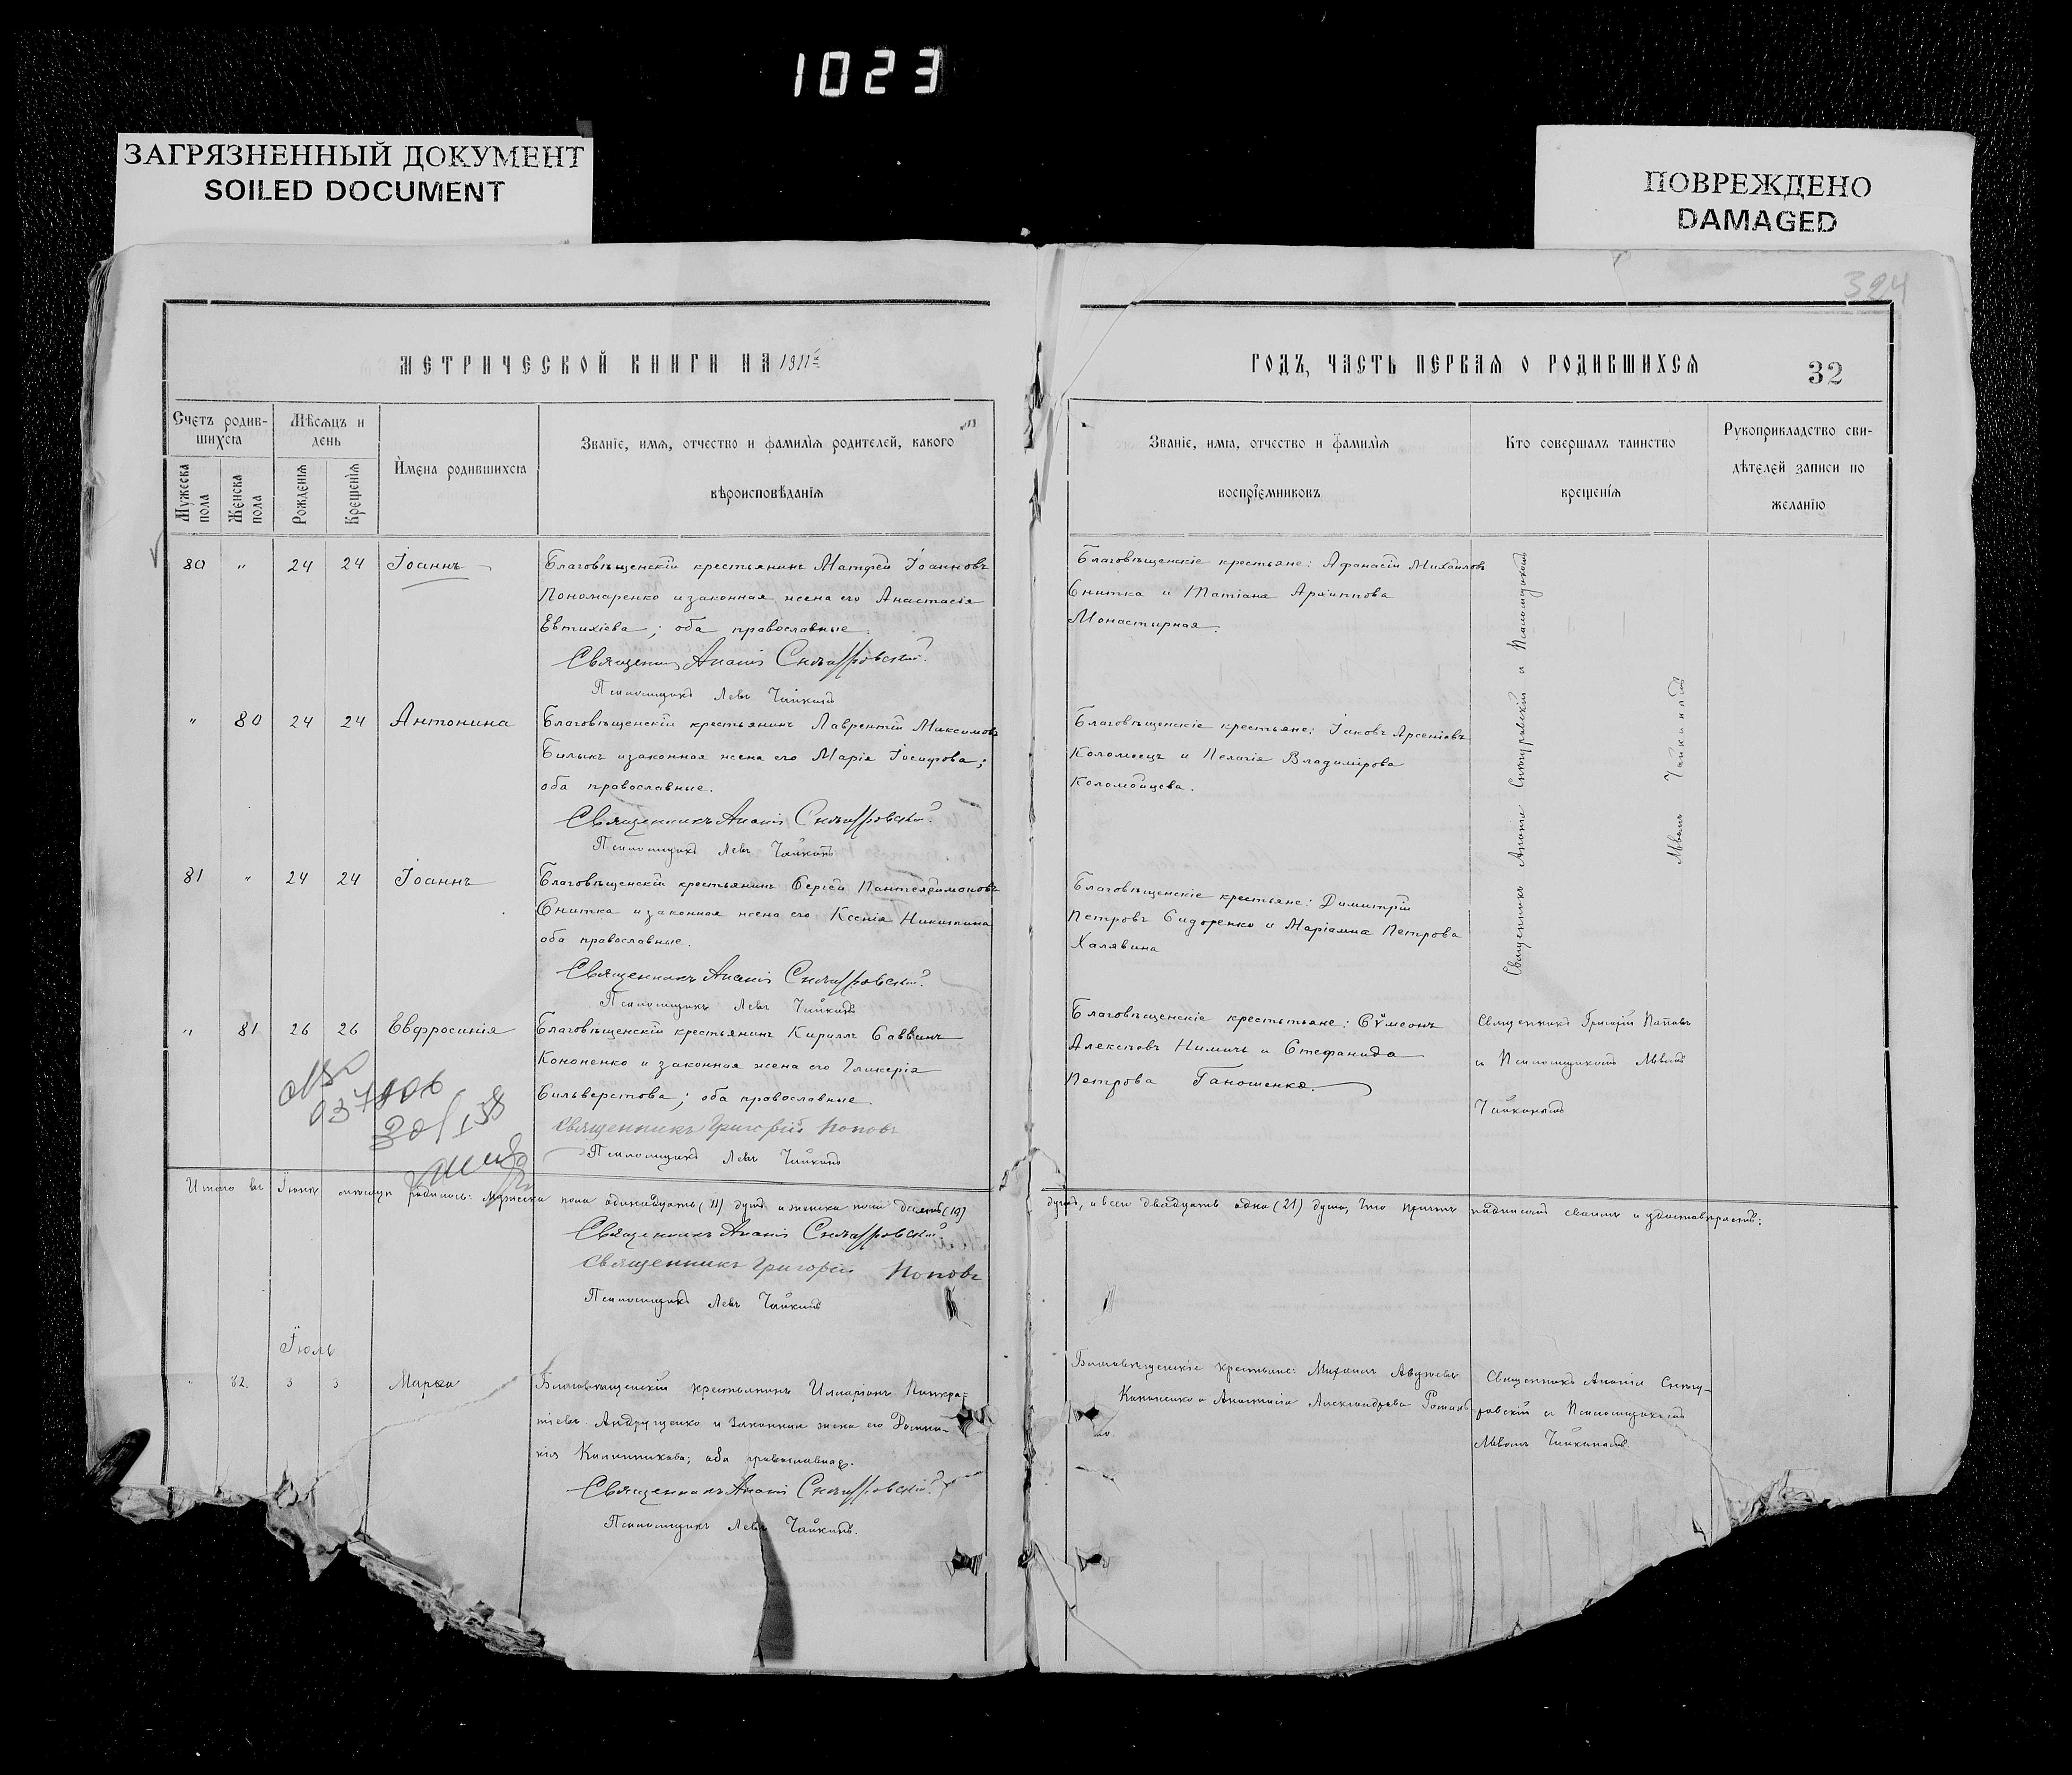 1023
ЗАГРЯЗНЕННЫЙ ДОКУМЕНТ
SOILED DOCUMENT
ПОВРЕЖДЕНО
DAMAGED
324
МЕТРИЧЕСКОЙ КНИГИ НА 1911 й
ГОДЪ, ЧАСТЬ ПЕРВАЯ О РОДИВШИХСЯ
32
Счетъ родив-
шихся
Мужеска пола
Женска пола
Мѣсяцъ и
день
Рожденія
Крещенія
Имена родившихся
Званіе, имя, отчество и фамилія родителей, какого
вѣроисповѣданія
Званіе, имя, отчество и фамилія
воспріемниковъ
Кто совершалъ таинство
крещенія
Рукоприкладство сви-
дѣтелей записи по
желанію
80 " 24 24 Іоаннъ
Благовѣщенскій крестьянинъ Матфей Іоанновъ
Пономаренко и законная жена его Анастасія
Евтихіева; оба православные.
Священникъ Ананій
Псаломщикъ Левъ Чайкинъ
Благовѣщенскіе крестьяне: Афанасій Михайловъ
Снитка и Татіана Архиппова
Монастырная.
Священникъ Ананій и Псаломщикомъ
Львомъ Чайкинымъ
" 80 24 24 Антонина
Благовѣщенскій крестьянинъ Лаврентій Максимовъ
Билыкъ и законная жена его Марія Іосифова;
оба православные.
Священникъ Ананій
Псаломщикъ Левъ Чайкинъ
Благовѣщенскіе крестьяне: Іаковъ Арсеніевъ
Коломоецъ и Пелагія Владимірова
Коломойцева.
81 " 24 24 Іоаннъ
Благовѣщенскій крестьянинъ Сергій Пантелеимоновъ
Снитка и законная жена его Ксенія Никитина
оба православные.
Священникъ Ананій
Псаломщикъ Левъ Чайкинъ
Благовѣщенскіе крестьяне: Димитрій
Петровъ Сидоренко и Маріамна Петрова
Халявина
" 81 26 26 Евфросинія
Благовѣщенскій крестьянинъ Кириллъ Саввинъ
Кононенко и законная жена его Гликерія
Сильверстова; оба православные.
Священникъ Григорій Поповъ
Псаломщикъ Левъ Чайкинъ
Благовѣщенскіе крестьтьяне: Сѵмеонъ
Алексѣевъ Нимичъ и Стефанида
Петрова Ганошенко.
Священникъ Григорій Поповъ
и Псаломщикомъ Львомъ
Чайкинымъ
Итого въ Іюнѣ мѣсяцѣ родилось: Мужеска пола одинадцать (11) душъ и женска пола десять (10)
душъ, а всего двадцать одна (21) душа, что причтъ подписомъ своимъ и удостовѣряетъ:
Священникъ Ананій
Священникъ Григорій Поповъ
Псаломщикъ Левъ Чайкинъ
Іюль
" 82. 3 3 Марѳа
Благовѣщенскій крестьянинъ Иларіонъ Панкра-
тіевъ Андрущенко и законная жена его
Калинникова; оба православные.
Священникъ Ананій
Псаломщикъ Левъ Чайкинъ.
Благовѣщенскіе крестьяне: Михаилъ
Кононенко и Анастасія Александрова
Священникъ Ананій
и Псаломщикомъ
Львомъ Чайкинымъ